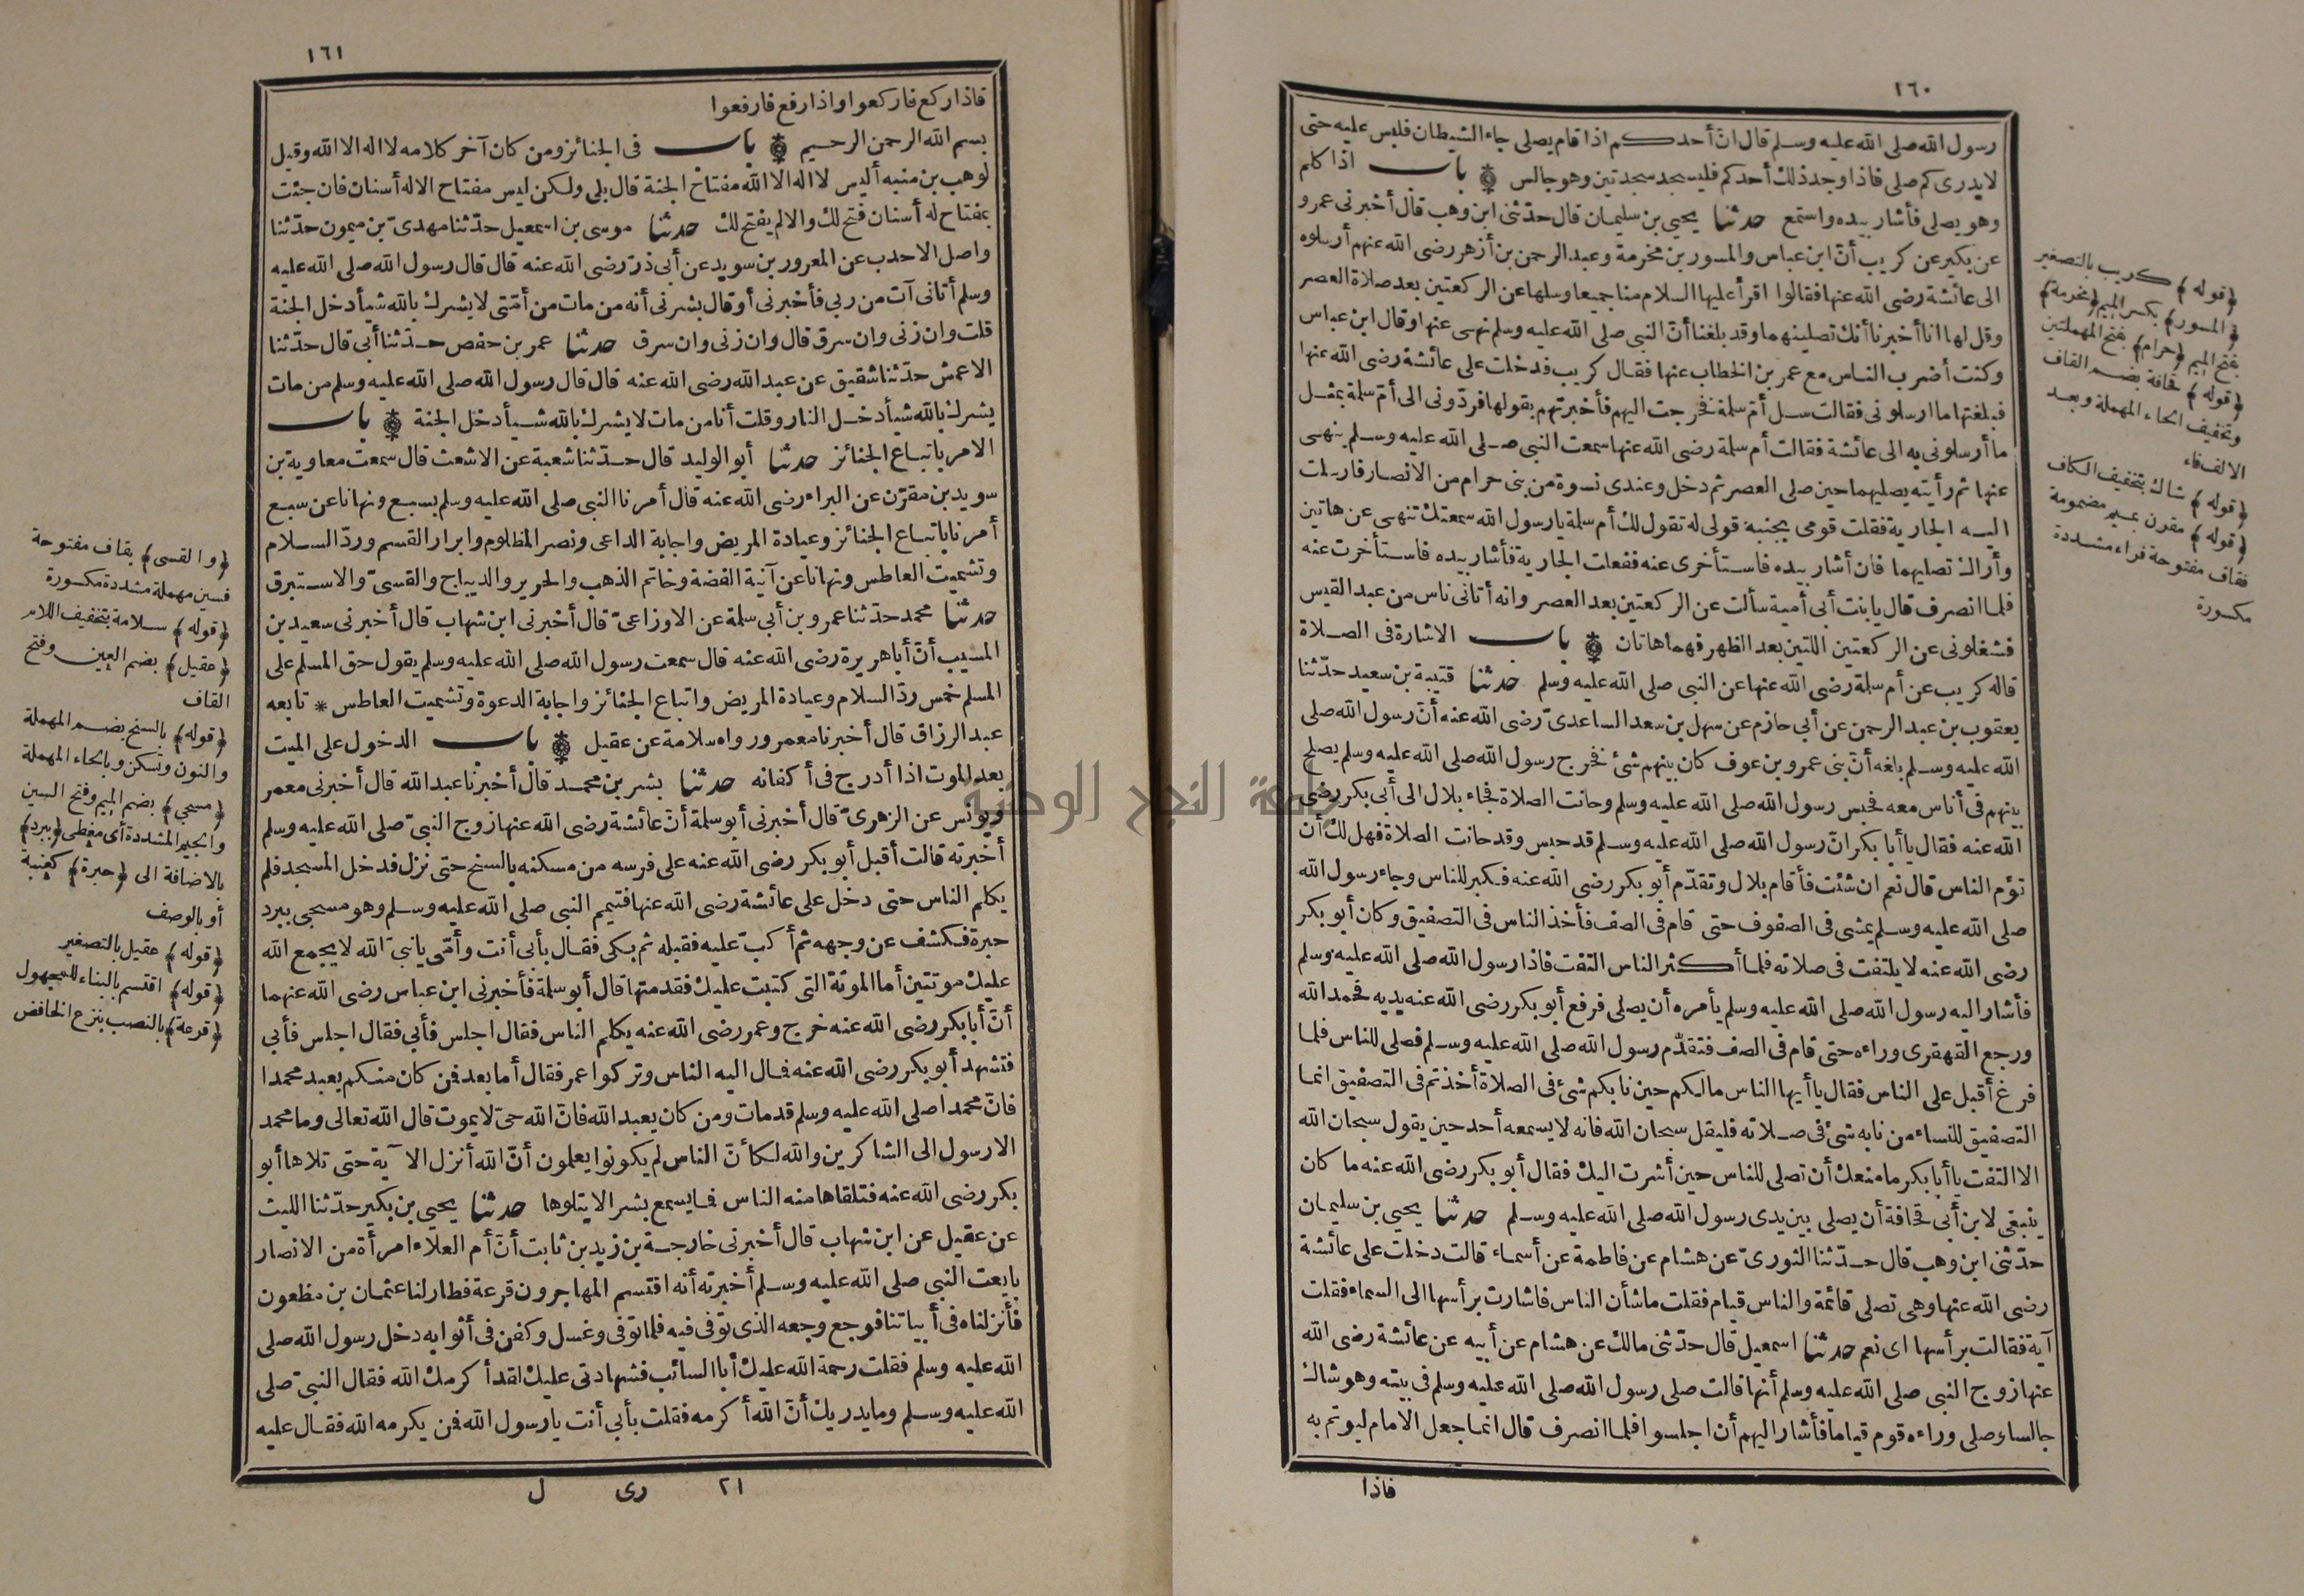 ١٦٠
رسول الله صلى الله عليه وسلم قال انّ أحدكم اذا قام يصلى جاء الشيطان فلبس عليه حتى
لايدرى كم صلى فاذا وجد ذلك أحدكم فليسجد سجدتين وهو جالس باب اذا كلم
وهو يصلى فأشار بيده واستمع حدثنا يحيى بن سليمان قال حدّثنى ابن وهب قال أخبرنى عمرو
عن بكير عن كريب أنّ ابن عباس والمسور بن مخرمة وعبد الرحمن بن أزهر رضى الله عنهم أرسلوه
الى عائشة رضى الله عنها فقالوا اقرأ عليها السلام منا جميعا وسلها عن الركعتين بعد صلاة العصر
وقل لها انا أخبرنا أنك تصلينهما وقد بلغنا أنّ النبى صلى الله عليه وسلم نهى عنها وقال ابن عباس
وكنت أضرب الناس مع عمر بن الخطاب عنها فقال كريب فدخلت على عائشة رضى الله عنها
فبلغتها ما ارسلونى فقالت سل أمّ سلمة فخرجت اليهم فأخبرتهم بقولها فردّونى الى أمّ سلمة بمثل
ما أرسلونى به الى عائشة فقالت أم سلمة رضى الله عنها سمعت النبى صلى الله عليه وسلم ينهى
عنها ثم رأيته يصليهما حين صلى العصر ثم دخل وعندى نسوة من بنى حرام من الانصار فارسلت
اليه الجارية فقلت قومى بجنبه قولى له تقول لك أم سلمة يا رسول الله سمعتك تنهى عن هاتين
وأراك تصليهما فان أشار بيده فاستأخرى عنه ففعلت الجارية فأشار بيده فاستأخرت عنه
فلما انصرف قال يا بنت أبى أمية سألت عن الركعتين بعد العصر وانه أتانى ناس من عبد القيس
فشغلونى عن الركعتين اللتين بعد الظهر فهما هاتان باب الاشارة فى الصلاة
قاله كريب عن أم سلمة رضى الله عنها عن النبى صلى الله عليه وسلم حدثنا قتيبة بن سعيد حدّثنا
يعقوب بن عبد الرحمن عن أبى حازم عن سهل بن سعد الساعدىّ رضى الله عنه أنّ رسول الله صلى
الله عليه وسلم بلغه أنّ بنى عمرو بن عوف كان بينهم شئ فخرج رسول الله صلى الله عليه وسلم يصلح
بينهم فى أناس معه فحبس رسول الله صلى الله عليه وسلم وحانت الصلاة فجاء بلال الى أبى بكر رضى
الله عنه فقال يا أبا بكر انّ رسول الله صلى الله عليه وسلم قد حبس وقد حانت الصلاة فهل لك أن
تؤم الناس قال نعم ان شئت فأقام بلال وتقدّم أبو بكر رضى الله عنه فكبر للناس وجاء رسول الله
صلى الله عليه وسلم يمشى فى الصفوف حتى قام فى الصف فأخذ الناس فى التصفيق وكان أبو بكر
رضى الله عنه لا يلتفت فى صلاته فلما أكثر الناس التفت فاذا رسول الله صلى الله عليه وسلم
فأشار اليه رسول الله صلى الله عليه وسلم يأمره أن يصلى فرفع أبو بكر رضى الله عنه يديه فحمد الله
ورجع القهقرى وراءه حتى قام فى الصف فتقدّم رسول الله صلى الله عليه وسلم فصلى للناس فلما
فرغ أقبل على الناس فقال يا أيها الناس مالكم حين نابكم شئ فى الصلاة أخذتم فى التصفيق انما
التصفيق للنساء من نابه شئ فى صلاته فليقل سبحان الله فانه لا يسمعه أحد حين يقول سبحان الله
الا التفت يا أبا بكر ما منعك أن تصلى للناس حين أشرت اليك فقال أبو بكر رضى الله عنه ما كان
ينبغى لابن أبى قحافة أن يصلى بين يدى رسول الله صلى الله عليه وسلم حدثنا يحيى بن سليمان
حدّثنى ابن وهب قال حدّثنا الثورىّ عن هشام عن فاطمة عن أسماء قالت دخلت على عائشة
رضى الله عنها وهى تصلى قائمة والناس قيام فقلت ما شأن الناس فاشارت برأسها الى السماء فقلت
آية فقالت برأسها اى نعم حدثنا اسمعيل قال حدّثنى مالك عن هشام عن أبيه عن عائشة رضى الله
عنها زوج النبى صلى الله عليه وسلم أنها قالت صلى رسول الله صلى الله عليه وسلم فى بيته وهو شاك
جالسا وصلى وراءه قوم قياما فأشار اليهم أن اجلسوا فلما انصرف قال انما جعل الامام ليوتم به
فاذا
﴿قوله﴾ كريب بالتصغير
﴿المسور﴾ بكسر الميم ﴿مخرمة﴾
بفتح الميم ﴿حرام﴾ بفتح المهملتين
﴿قوله﴾ قحافة بضم القاف
وتخفيف الحاء المهملة وبعد
الالف فاء
﴿قوله﴾ شاك بتخفيف الكاف
﴿قوله﴾ مقرن بميم مضمومة
فقاف مفتوحة فراء مشددة
مكسورة
١٦١
فاذا ركع فاركعوا واذا رفع فارفعوا
بسم الله الرحمن الرحيم باب فى الجنائز ومن كان آخر كلامه لا اله الا الله وقيل
لوهب بن منبه أليس لا اله الا الله مفتاح الجنة قال بلى ولكن ليس مفتاح الا له أسنان فان جئت
بمفتاح له أسنان فتح لك والا لم يفتح لك حدثنا موسى بن اسمعيل حدّثنا مهدىّ بن ميمون حدّثنا
واصل الاحدب عن المعرور بن سويد عن أبى ذرّ رضى الله عنه قال قال رسول الله صلى الله عليه
وسلم أتانى آت من ربى فأخبرنى أو قال بشرنى أنه من مات من أمّتى لا يشرك بالله شيأ دخل الجنة
قلت وان زنى وان سرق قال وان زنى وان سرق حدثنا عمر بن حفص حدّثنا أبى قال حدّثنا
الاعمش حدّثنا شقيق عن عبد الله رضى الله عنه قال قال رسول الله صلى الله عليه وسلم من مات
يشرك بالله شيأ دخل النار وقلت أنا من مات لا يشرك بالله شيأ دخل الجنة باب
الامر باتباع الجنائز حدثنا أبو الوليد قال حدّثنا شعبة عن الاشعث قال سمعت معاوية بن
سويد بن مقرّن عن البراء رضى الله عنه قال أمرنا النبى صلى الله عليه وسلم بسبع ونهانا عن سبع
أمرنا باتباع الجنائز وعيادة المريض واجابة الداعى ونصر المظلوم وابرار القسم وردّ السلام
وتشميت العاطس ونهانا عن آنية الفضة وخاتم الذهب والحرير والديباج والقسىّ والاستبرق
حدثنا محمد حدّثنا عمرو بن أبى سلمة عن الاوزاعىّ قال أخبرنى ابن شهاب قال أخبرنى سعيد بن
المسيب أنّ أبا هريرة رضى الله عنه قال سمعت رسول الله صلى الله عليه وسلم يقول حق المسلم على
المسلم خمس ردّ السلام وعيادة المريض واتباع الجنائز واجابة الدعوة وتشميت العاطس * تابعه
عبد الرزاق قال أخبرنا معمر ورواه سلامة عن عقيل باب الدخول على الميت
بعد الموت اذا أدرج فى أكفانه حدثنا بشر بن محمد قال أخبرنا عبد الله قال أخبرنى معمر
ويونس عن الزهرىّ قال أخبرنى أبو سلمة أنّ عائشة رضى الله عنها زوج النبىّ صلى الله عليه وسلم
أخبرته قالت أقبل أبو بكر رضى الله عنه على فرسه من مسكنه بالسنح حتى نزل فدخل المسجد فلم
يكلم الناس حتى دخل على عائشة رضى الله عنها فتيمم النبى صلى الله عليه وسلم وهو مسجى ببرد
حبرة فكشف عن وجهه ثم أكبّ عليه فقبله ثم بكى فقال بأبى أنت وأمّى يا نبىّ الله لا يجمع الله
عليك موتتين أما الموتة التى كتبت عليك فقد متها قال أبو سلمة فأخبرنى ابن عباس رضى الله عنهما
أنّ أبا بكر رضى الله عنه خرج وعمر رضى الله عنه يكلم الناس فقال اجلس فأبى فقال اجلس فأبى
فتشهد أبو بكر رضى الله عنه فمال اليه الناس وتركوا عمر فقال أما بعد فمن كان منكم يعبد محمدا
فانّ محمدا صلى الله عليه وسلم قد مات ومن كان يعبد الله فانّ الله حىّ لا يموت قال الله تعالى وما محمد
الا رسول الى الشاكرين والله لكأنّ الناس لم يكونوا يعلمون أنّ الله أنزل الآية حتى تلاها أبو
بكر رضى الله عنه فتلقاها منه الناس فما يسمع بشر الا يتلوها حدثنا يحيى بن بكير حدّثنا الليث
عن عقيل عن ابن شهاب قال أخبرنى خارجة بن زيد بن ثابت أنّ أم العلاء امرأة من الانصار
بايعت النبى صلى الله عليه وسلم أخبرته أنه اقتسم المهاجرون قرعة فطار لنا عثمان بن مظعون
فأنزلناه فى أبياتنا فوجع وجعه الذى توفى فيه فلما توفى وغسل وكفن فى أثوابه دخل رسول الله صلى
الله عليه وسلم فقلت رحمة الله عليك أبا السائب فشهادتى عليك لقد أكرمك الله فقال النبىّ صلى
الله عليه وسلم وما يدريك أنّ الله أكرمه فقلت بأبى أنت يا رسول الله فمن يكرمه الله فقال عليه
٢١ رى ل
﴿والقسى﴾ بقاف مفتوحة
فسين مهملة مشددة مكسورة
﴿قوله﴾ سلامة بتخفيف اللام
﴿عقيل﴾ بضم العين وفتح
القاف
﴿قوله﴾ بالسنح بضم المهملة
والنون وتسكن وبالحاء المهملة
﴿مسجى﴾ بضم الميم وفتح السين
والجيم المشددة أى مغطى ﴿ببرد﴾
بالاضافة الى ﴿حبرة﴾ كعنبة
أو بالوصف
﴿قوله﴾ عقيل بالتصغير
﴿قوله﴾ اقتسم بالبناء للمجهول
﴿قرعة﴾ بالنصب بنزع الخافض